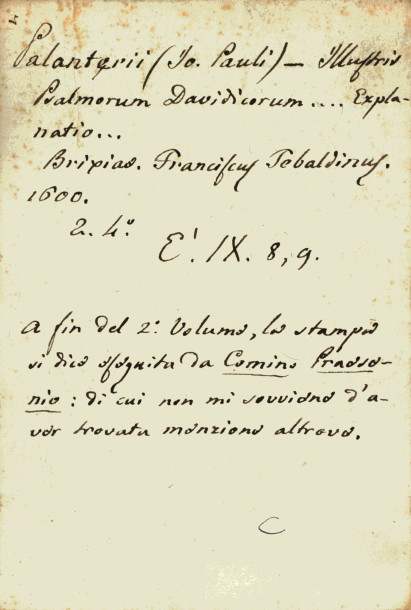 Palanterii (Jo. Pauli) — Illustris
Psalmorum Davidicorum .... Expla-
natio...
Brixiae. Franciscus Tebaldinus.
1600.
2. 4.º
E'. IX. 8, 9.
A fin del 2.º Volume, la stampa
si dice eseguita da Comino Praeso-
nio : di cui non mi sovviene d'a-
ver trovata menzione altrove.
C